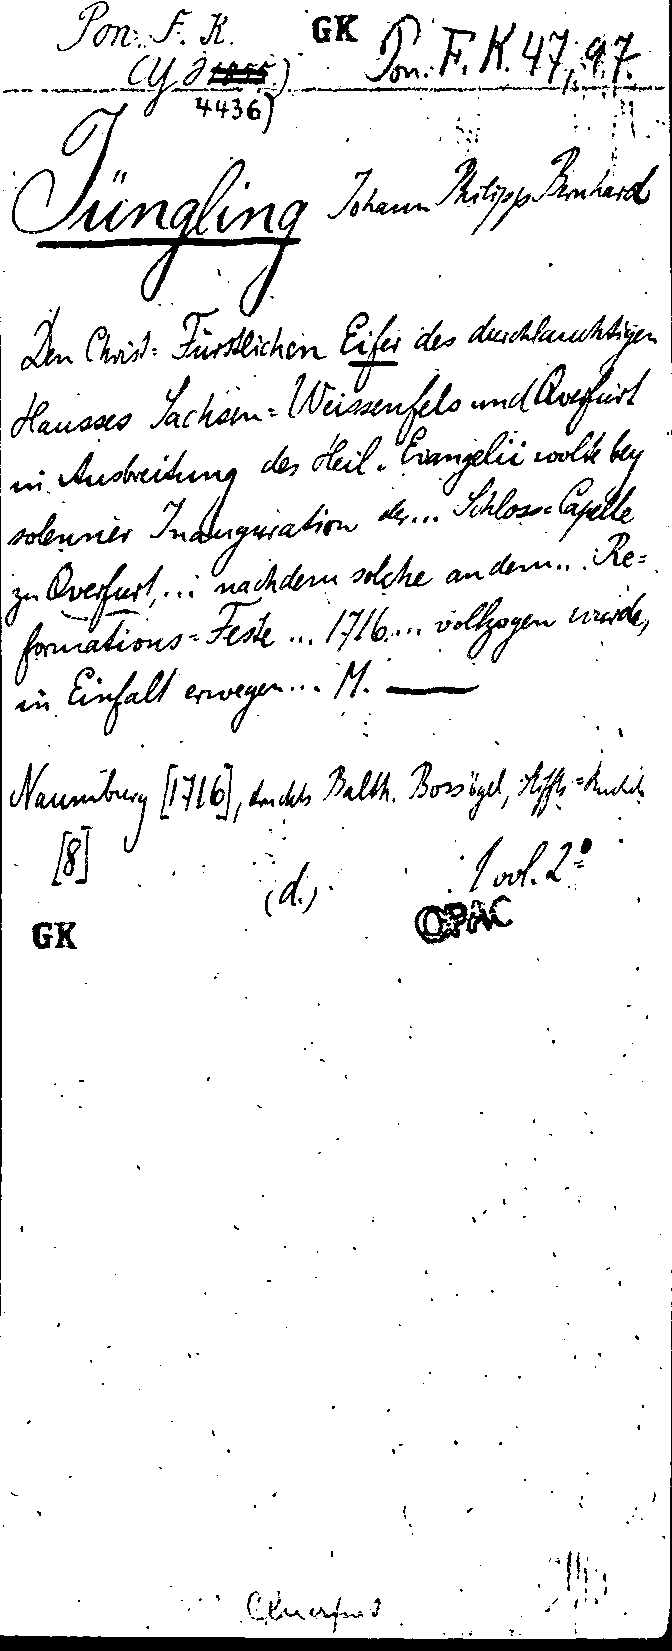 Pon. F. K. GK Pon. F. K. 47, 97.
4436)
Jüngling Johann Philipp Bernhard
Den Christ= Fürstlichen Eifer des durchlauchtigen
Hausses Sachsen=Weissenfels und Qverfurt
in Ausbreitung des Heil. Evangelii wolte bey
solenner Inauguration der... Schloss=Capelle
zu Qverfurt,... nachdem solche an dem... Re=
formations=Feste ... 1716.... vollzogen wurde,
in Einfalt erwegen... M. —
Naumburg [1716], druckts Balth. Bossögel, Stiffts=
[8] (d.) 1 vol. 2°
GK OPAC